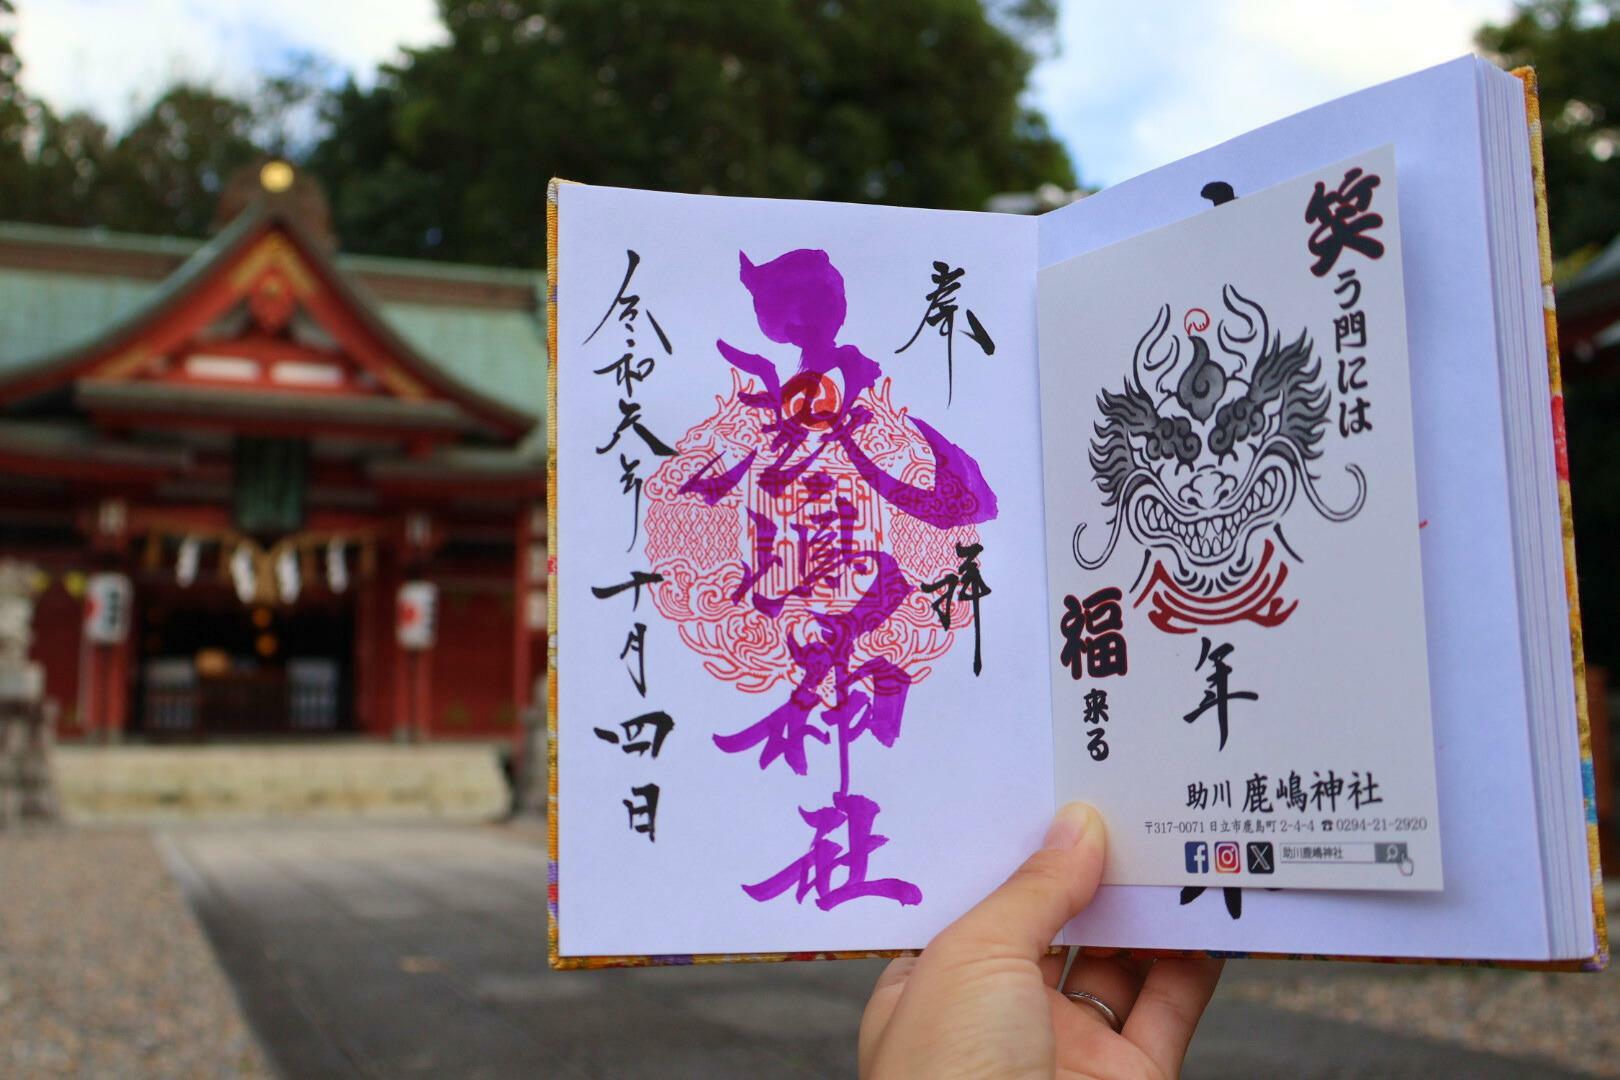 笑う門には
福来る
年
助川 鹿嶋神社
〒317-0071 日立市鹿島町2-4-4 ☎0294-21-2920
助川鹿嶋神社
奉拝
鹿嶋神社
令和六年十月四日